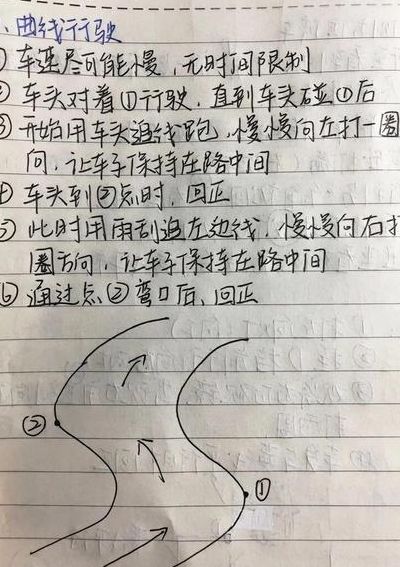 、曲线行驶
① 车速尽可能慢，无时间限制
② 车头对着①行驶，直到车头碰①后
③ 开始用车头追线跑，慢慢向左打一圈
向，让车子保持在路中间
④ 车头到②点时，回正
⑤ 此时用雨刮追左边线，慢慢向右打
圈方向，让车子保持在路中间
⑥ 通过点②弯口后、回正
②
①